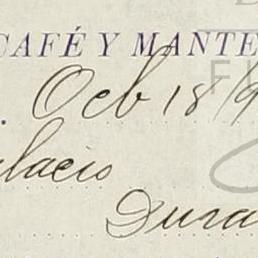 CAFÉ Y MANTE
. Ocb 18/9
alacio
Dura